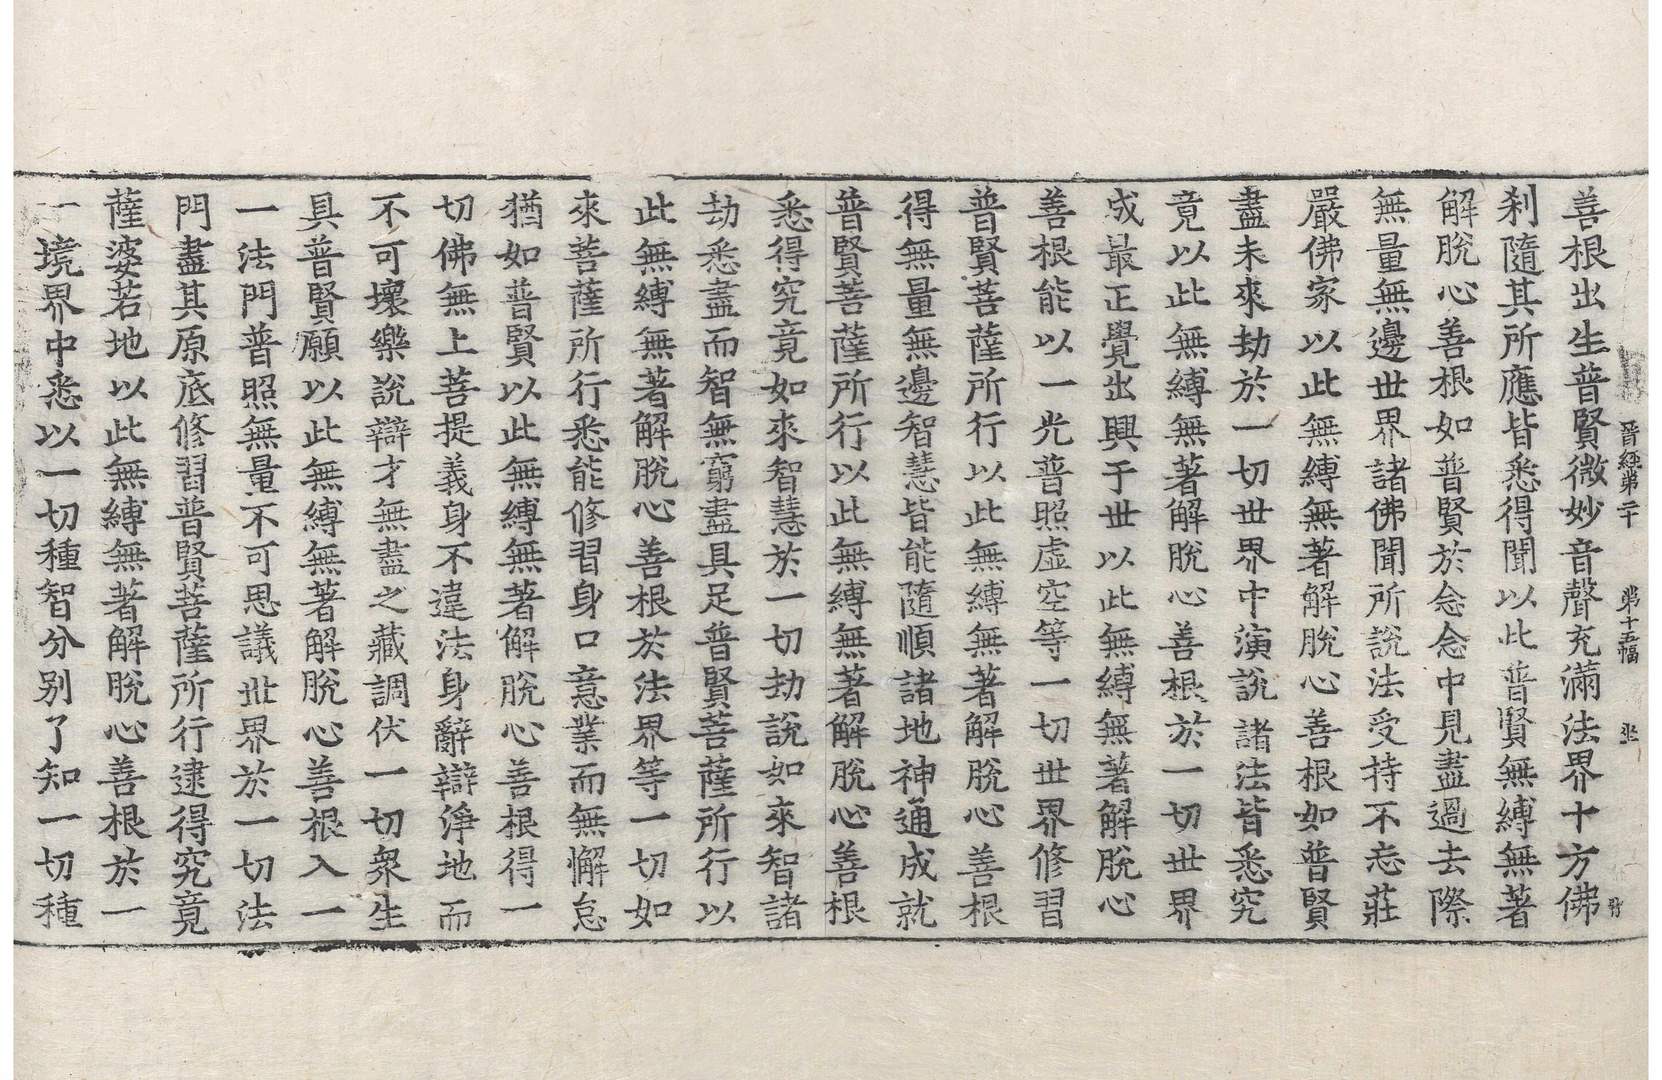 晉經第二十　第十五幅　坐
善根出生普賢微妙音聲充滿法界十方佛
刹隨其所應皆悉得聞以此普賢無縛無著
解脫心善根如普賢於念念中見盡過去際
無量無邊世界諸佛聞所說法受持不忘莊
嚴佛家以此無縛無著解脫心善根如普賢
盡未來劫於一切世界中演說諸法皆悉究
竟以此無縛無著解脫心善根於一切世界
成最正覺出興于世以此無縛無著解脫心
善根能以一光普照虛空等一切世界修習
普賢菩薩所行以此無縛無著解脫心善根
得無量無邊智慧皆能隨順諸地神通成就
普賢菩薩所行以此無縛無著解脫心善根
悉得究竟如來智慧於一切劫說如來智諸
劫悉盡而智無窮盡具足普賢菩薩所行以
此無縛無著解脫心善根於法界等一切如
來菩薩所行悉能修習身口意業而無懈怠
猶如普賢以此無縛無著解脫心善根得一
切佛無上菩提義身不違法身辭辯淨地而
不可壞樂說辯才無盡之藏調伏一切衆生
具普賢願以此無縛無著解脫心善根入一
一法門普照無量不可思議世界於一切法
門盡其原底修習普賢菩薩所行逮得究竟
薩婆若地以此無縛無著解脫心善根於一
一境界中悉以一切種智分別了知一切種